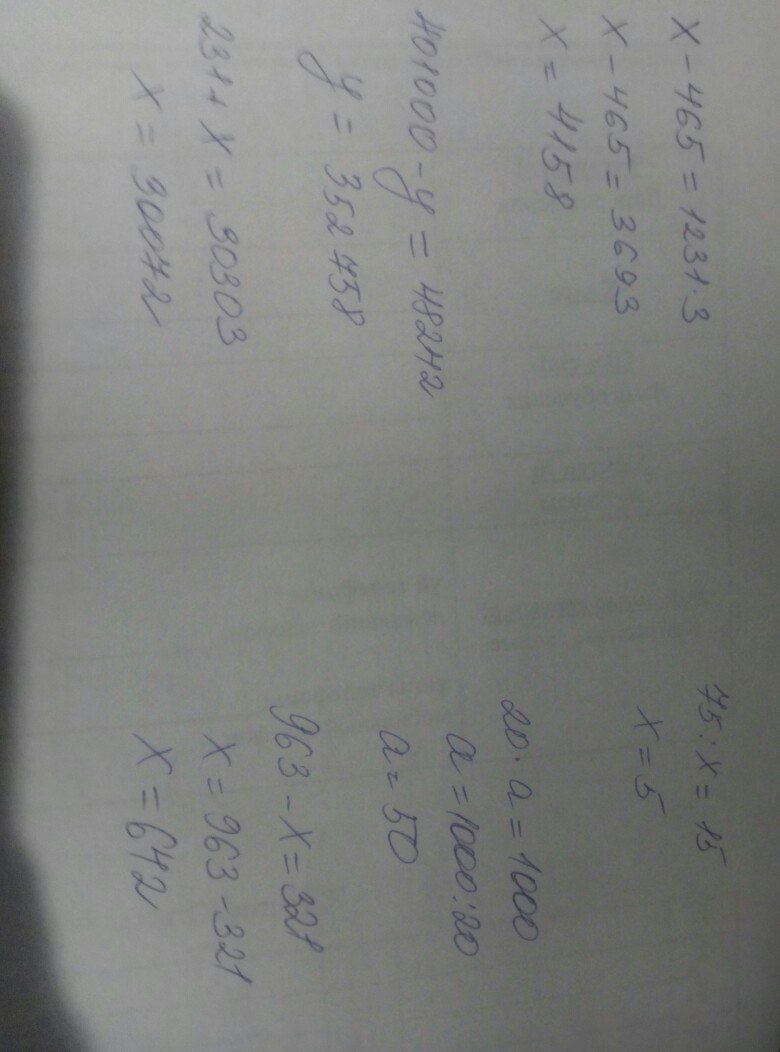 X - 465 = 1231·3
X - 465 = 3693
X = 4158
401000 - y = 48242
y = 352758
231 + X = 90303
X = 90072
75 : X = 15
X = 5
20 · a = 1000
a = 1000 : 20
a = 50
963 - X = 321
X = 963 - 321
X = 642